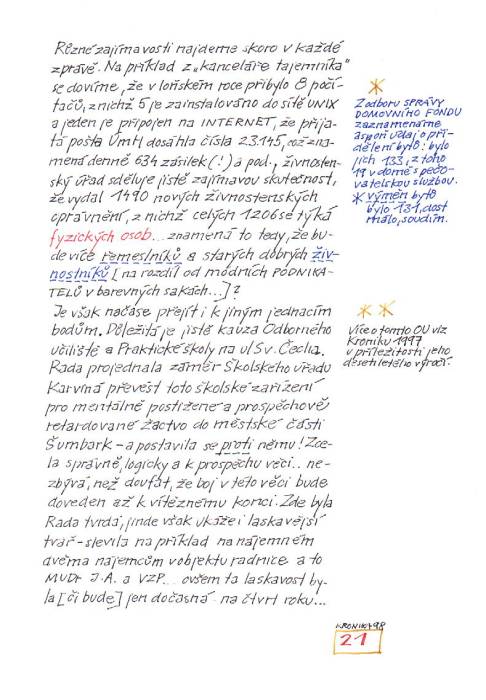 Různé zajímavosti najdeme skoro v každé
zprávě. Na příklad z „kanceláře tajemníka"
se dovíme, že v loňském roce přibylo 8 počí-
tačů, z nichž 5 je zainstalováno do sítě UNIX
a jeden je připojen na INTERNET, že přija-
tá pošta ÚmH dosáhla čísla 23.145, což zna-
mená denně 634 zásilek (!) a pod., živnosten-
ský úřad sděluje jistě zajímavou skutečnost,
že vydal 1490 nových živnostenských
oprávnění, z nichž celých 1206 se týká
fyzických osob... znamená to tedy, že bu-
de více řemeslníků a starých dobrých živ-
nostníků [na rozdíl od módních PODNIKA-
TELŮ v barevných sakách...]?
Je však načase přejít i k jiným jednacím
bodům. Důležitá je jistě kauza Odborného
učiliště a Praktické školy na ul Sv. Čecha.
Rada projednala záměr Školského úřadu
Karviná převést toto školské zařízení
pro mentálně postižené a prospěchově
retardované žactvo do městské části
Šumbark – a postavila se proti němu! Zce-
la správně, logicky a k prospěchu věci.. ne-
zbývá, než doufat, že boj v této věci bude
doveden až k vítěznému konci. Zde byla
Rada tvrdá, jinde však ukáže i laskavější
tvář – slevila na příklad na nájemném
dvěma nájemcům v objektu radnice a to
MUDr J.A. a VZP... ovšem ta laskavost by-
la [či bude] jen dočasná - na čtvrt roku...
Z odboru SPRÁVY
DOMOVNÍHO FONDU
zaznamenáme
aspoň údaj o při-
dělení bytů: bylo
jich 133, z toho
19 v domě s pečo-
vatelskou službou.
* výměn bytů
bylo 131, dost
málo, soudím.
* *
Více o tomto OU viz
Kroniku 1997
u příležitosti jeho
desetiletého výročí.
KRONIKA 98
21